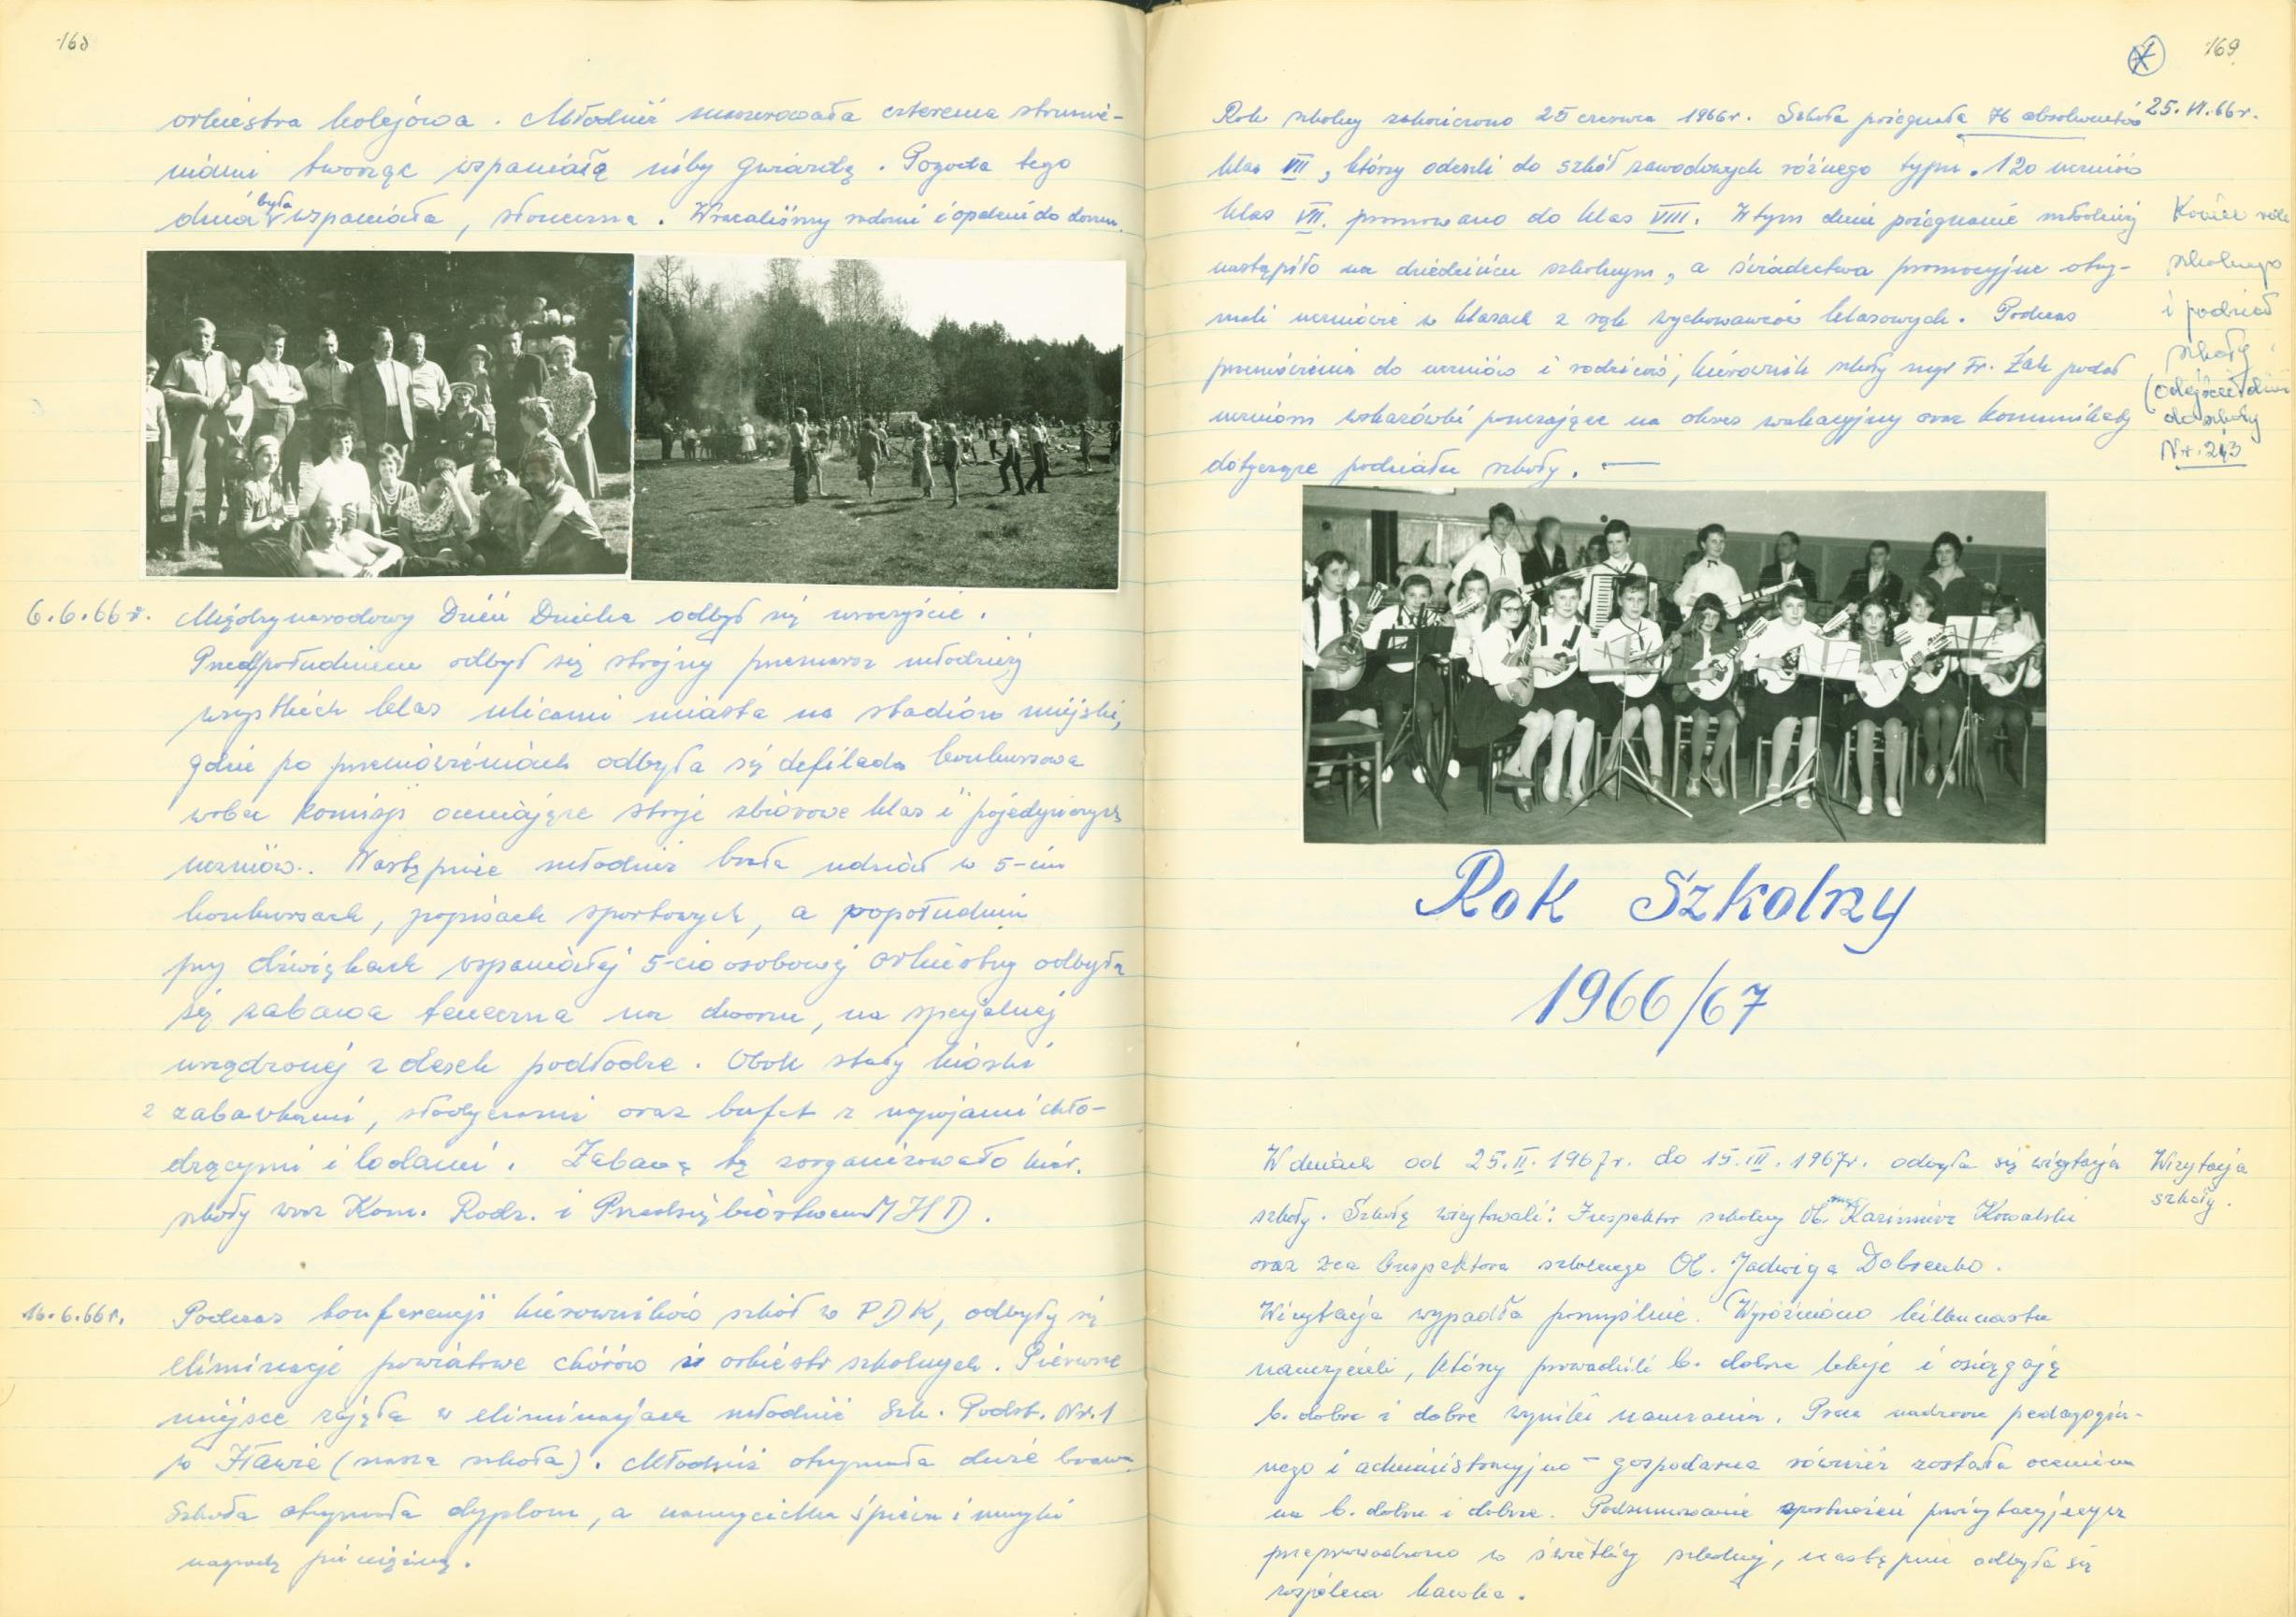 168
orkiestra kolejowa. Młodzież maszerowała czterema strumie-
niami tworząc wspaniałą niby gwiazdę. Pogoda tego
dnia była wspaniała, słoneczna. Wracaliśmy radośni i opaleni do domu.
6.6.66 r. Międzynarodowy Dzień Dziecka odbył się uroczyście.
Przed południem odbył się strojny przemarsz młodzieży
wszystkich klas ulicami miasta na stadion miejski,
gdzie po przemówieniach odbyła się defilada konkursowa
wobec Komisji oceniające stroje zbiorowe klas i pojedynczych
uczniów. Następnie młodzież brała udział w 5-ciu
konkursach, popisach sportowych, a popołudniu
przy dźwiękach wspaniałej 5-cio osobowej orkiestry odbyła
się zabawa taneczna na dworze, na specjalnej
urządzonej z desek podłodze. Obok stały kioski
z zabawkami, słodyczami oraz bufet z napojami chło-
dzącymi i lodami. Zabawę tę zorganizowało kier.
szkoły wraz Kom. Rodz. i Przedsiębiorstwem MHD.
16.6.66 r. Podczas konferencji kierowników szkół w PDK, odbyły się
eliminacje powiatowe chórów i orkiestr szkolnych. Pierwsze
miejsce zajęła w eliminacjach młodzież Szk. Podst. Nr. 1
w Iławie (nasza szkoła). Młodzież otrzymała duże brawa
Szkoła otrzymała dyplom, a nauczycielka śpiewu i muzyki
nagrodę pieniężną.
169
Rok szkolny zakończono 25 czerwca 1966 r. Szkoła pożegnała 76 absolwentów
25.VI.66 r.
klas VII, którzy odeszli do szkół zawodowych różnego typu. 120 uczniów
klas VII. promowano do klas VIII. W tym dniu pożegnanie młodzieży
nastąpiło na dziedzińcu szkolnym, a świadectwa promocyjne otrzy-
mali uczniowie w klasach z rąk wychowawców klasowych. Podczas
przemówienia do uczniów i rodziców, kierownik szkoły mgr Fr. Żak podał
uczniom wskazówki pouczające na okres wakacyjny oraz komunikaty
dotyczące podziału szkoły. —
Koniec roku
szkolnego
i podział
szkoły
(odejście dzieci
do szkoły
Nr. 2i3
Rok Szkolny
1966/67
W dniach od 25.II.1967 r. do 15.III.1967 r. odbyła się wizytacja
Wizytacja
szkoły.
szkoły. Szkołę wizytowali: Inspektor szkolny Ob. mgr Kazimierz Kowalski
oraz zca Inspektora szkolnego Ob. Jadwiga Dobrenko.
Wizytacja wypadła pomyślnie. Wyróżniono kilkunastu
nauczycieli, którzy prowadzili b. dobre lekcje i osiągają
b. dobre i dobre wyniki nauczania. Praca nadzoru pedagogicz-
nego i administracyjno-gospodarcza również została oceniona
na b. dobre i dobre. Podsumowanie spostrzeżeń powizytacyjnych
przeprowadzono w świetlicy szkolnej, następnie odbyła się
wspólna kawka.